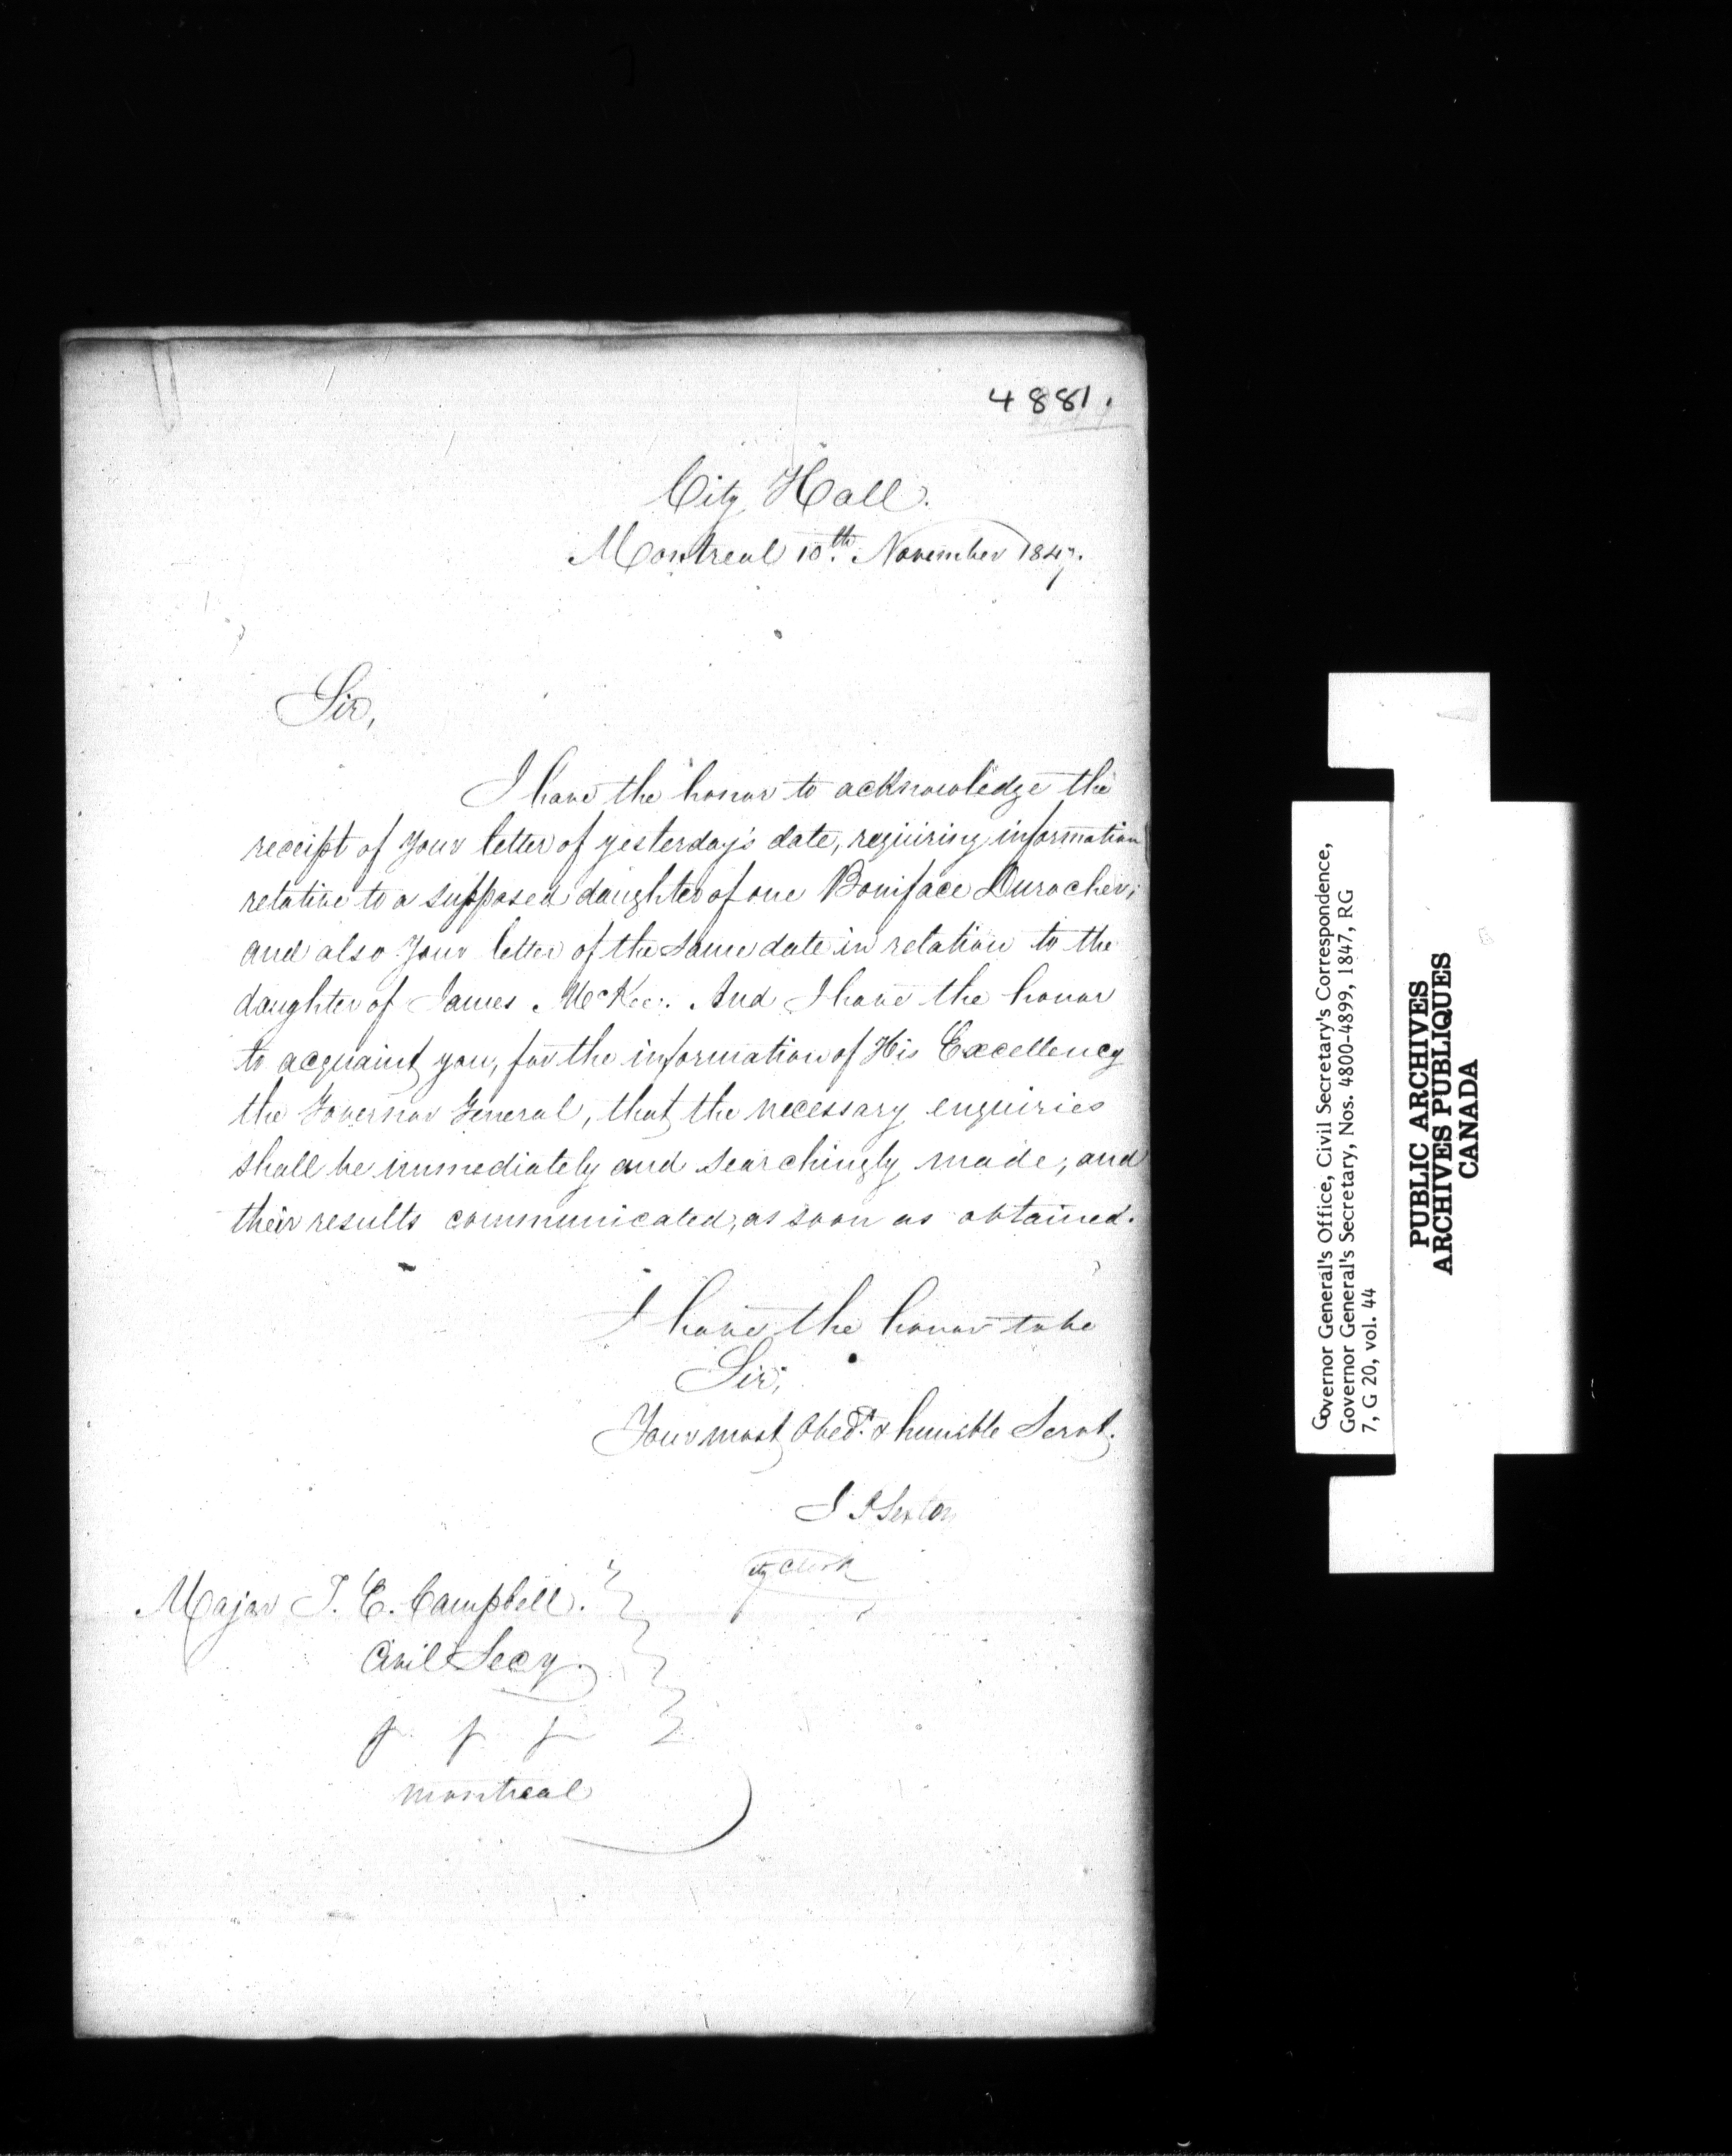 4881.
City Hall.
Montreal 10th. November 1847.
Sir,
I have the honor to acknowledge the
receipt of your letter of yesterday's date, requiring information
relative to a supposed daughter of one Boniface Durocher;
and also your letter of the same date in relation to the
daughter of James McKee. And I have the honor
to acquaint you, for the information of His Excellency
the Governor General, that the necessary enquiries
shall be immediately and searchingly made; and
their results communicated, as soon as obtained.
I have the honor to be
Sir,
Your most Obedt. & humble Servt.
J P Sexton
City Clerk
Major T. E. Campbell.
Civil Secy.
Montreal
Governor General's Office, Civil Secretary's Correspondence,
Governor General's Secretary, Nos. 4800-4899, 1847, RG
7, G 20, vol. 44
PUBLIC ARCHIVES
ARCHIVES PUBLIQUES
CANADA